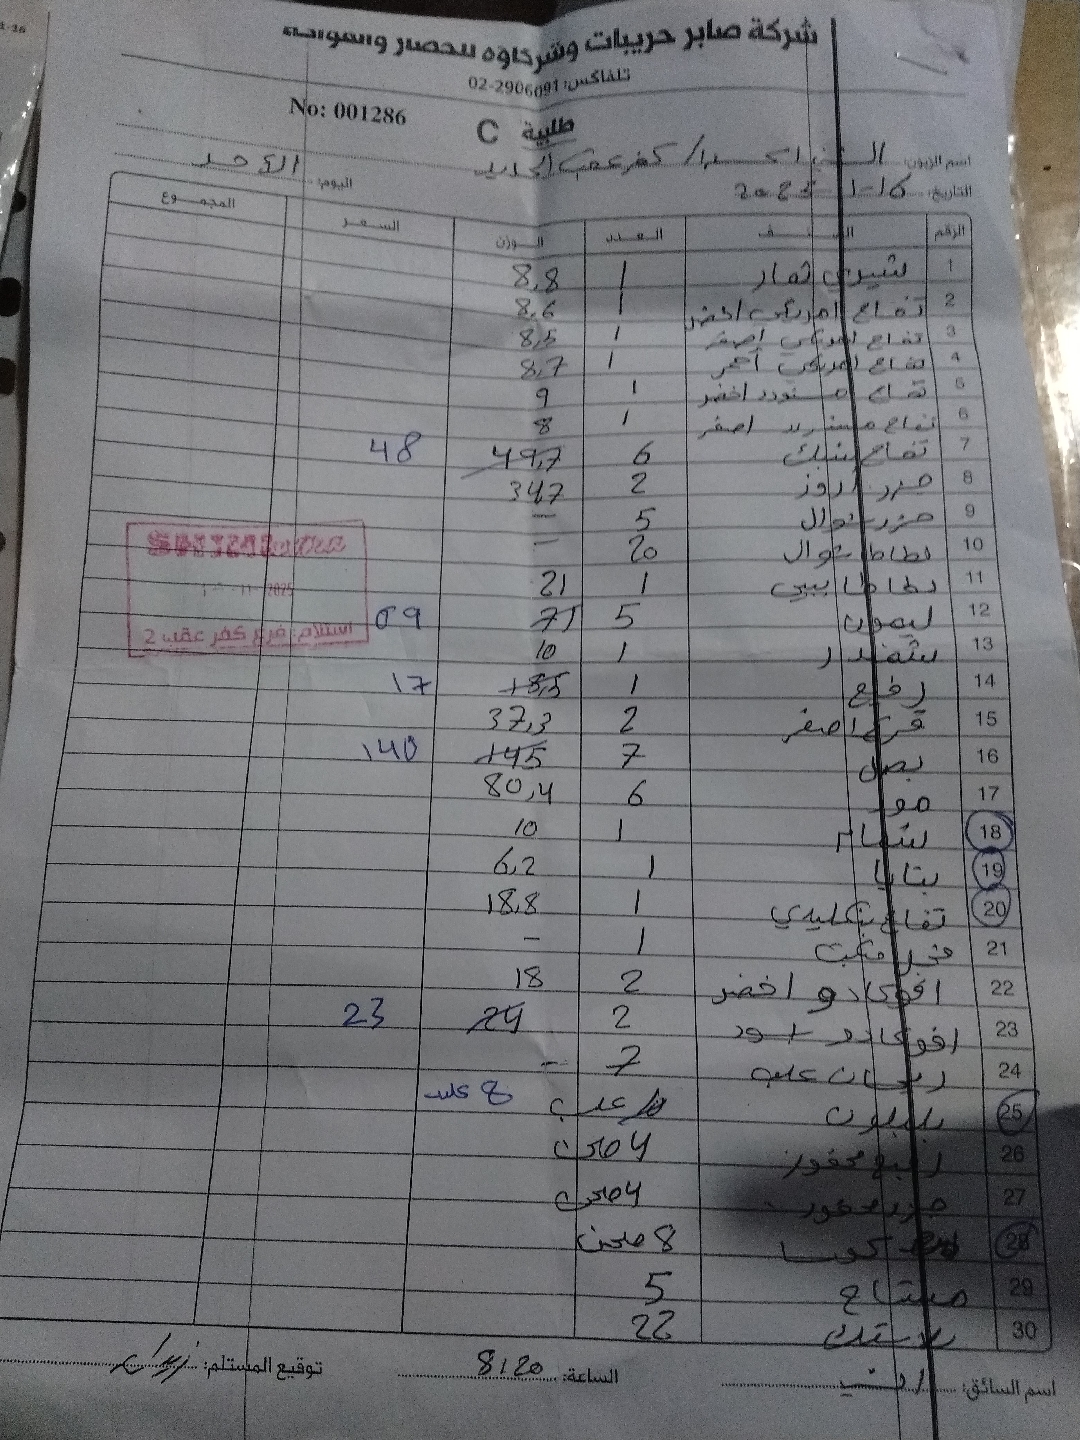 شركة صابر حريبات وشركاؤه للخضار والفواكه
تلفاكس: 02-2906091
No: 001286
طلبية C
اسم الزبون: كفر عقب الجديد
اليوم: الأحد
التاريخ: 16-1
الرقم الصنف العدد الوزن السعر المجموع
1 شيري ثمار 1 8,8
2 تفاح امريكي اخضر 1 8,6
3 تفاح امريكي اصفر 1 8,5
4 تفاح امريكي احمر 1 8,7
5 تفاح مستورد اخضر 1 9
6 تفاح مستورد اصفر 1 8
7 تفاح بنك 6 49,7 48
8 جزر 2 34,7
9 جزر شوال 5 -
10 بطاطا شوال 20 -
11 بطاطا بيبي 1 21
12 ليمون 5 71 69
13 شمندر 1 10
14 1 18,5 17
15 قرع اصفر 2 37,3
16 بصل 7 145 140
17 موز 6 80,4
18 شمام 1 10
19 1 6,2
20 تفاح 1 18,8
21 1 -
22 افوكادو اخضر 2 18
23 افوكادو اسود 2 24 23
24 ريحان علب 7 -
25 علب 8 علب
26 محفور 4 صحن
27 جزر محفور 4 صحن
28 كوسا 8 صحن
29 مشتاح 5
30 بلاستيك 22
استلام: فرع كفر عقب 2
اسم السائق:
الساعة: 8:20
توقيع المستلم: